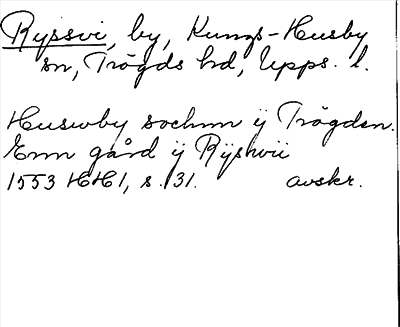 Ryssvi, by, Kungs-Husby
sn, Trögds hd, Upps. l.
Huswby sochnn ÿ Trögden.
Enn gård ÿ Rÿshvii
1553 HH1, s. 31. avskr.